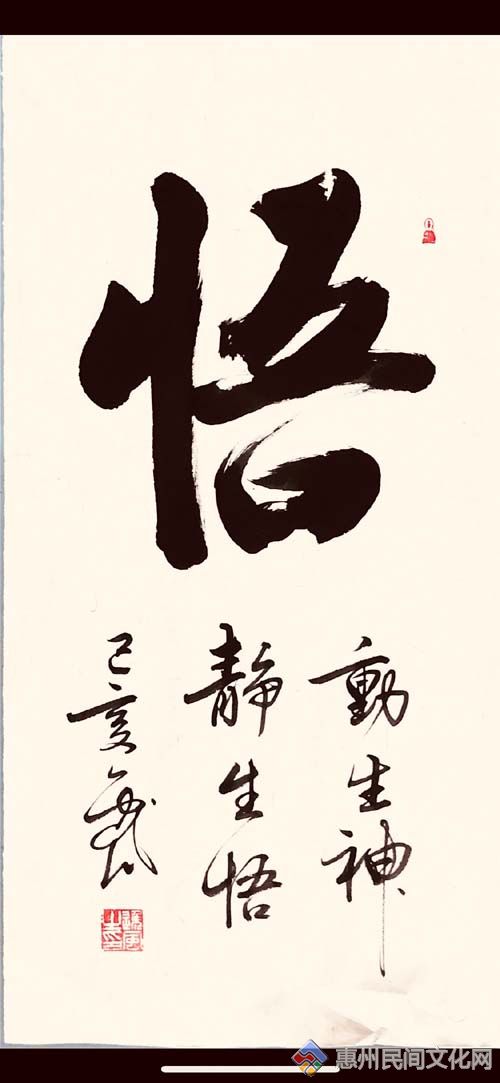 悟
動生神
静生悟
己亥
惠州民间文化网